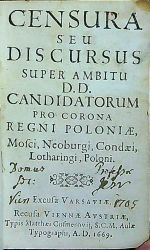 CENSURA
SEU
DISCURSUS
SUPER AMBITU
D.D.
CANDIDATORUM
PRO CORONA
REGNI POLONIÆ,
Mosci, Neoburgi, Condæi,
Lotharingi, Poloni.
Domus
Excusa VARSAVIÆ 1705
Recusa VIENNÆ AVSTRIÆ,
Typis Matthæi Cosmerovij, S.C.M. Aulæ
Typographi, A.D. 1669.